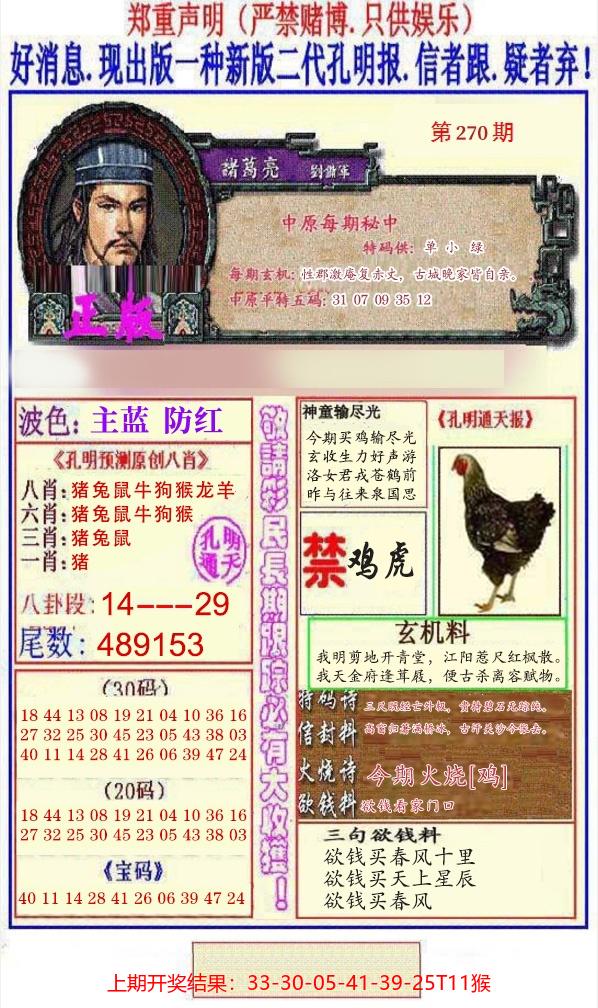 郑重声明（严禁赌博.只供娱乐）
好消息.现出版一种新版二代孔明报.信者跟.疑者弃！
第270期
諸葛亮 劉備軍
中原每期秘中
特码供：单 小 绿
每期玄机：性郡激庵复赤史，古城晚家皆自亲。
中原平特五码：31 07 09 35 12
正版
波色：主蓝 防红
《孔明预测原创八肖》
八肖：猪兔鼠牛狗猴龙羊
六肖：猪兔鼠牛狗猴
三肖：猪兔鼠
一肖：猪
孔明
通天
八卦段：14---29
尾数：489153
（30码）
18 44 13 08 19 21 04 10 36 16
27 32 25 30 45 23 05 43 38 03
40 11 14 28 41 26 06 39 47 24
（20码）
18 44 13 08 19 21 04 10 36 16
27 32 25 30 45 23 05 43 38 03
《宝码》
40 11 14 28 41 26 06 39 47 24
敬請彩民長期跟踪必有大收獲！
神童输尽光
今期买鸡输尽光
玄收生力好声游
洛女君戎苍鹤前
昨与往来泉国思
《孔明通天报》
禁 鸡虎
玄机料
我明剪地开青堂，江阳惹尺红枫散。
我天金府逢茸屐，便古杀离容赋物。
特码诗
信封料
火烧诗 今期火烧[鸡]
欲钱料 欲钱看家门口
三句欲钱料
欲钱买春风十里
欲钱买天上星辰
欲钱买春风
上期开奖结果：33-30-05-41-39-25T11猴